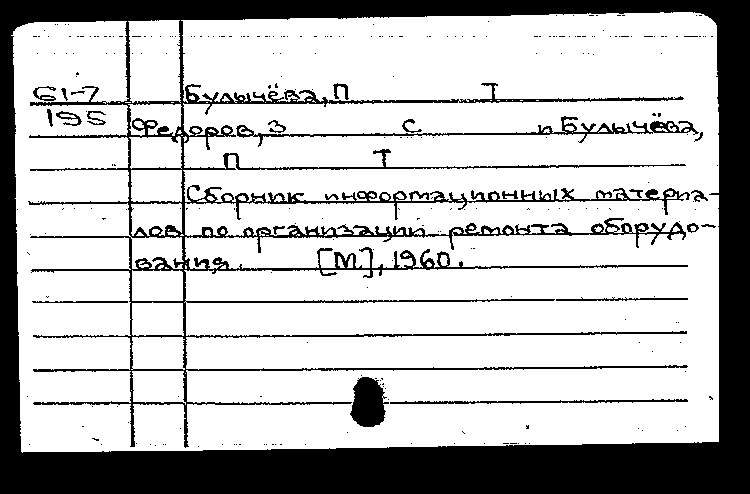 61-7 Булычёва, П Т
195 Федоров, З С и Булычёва,
П Т
Сборник информационных материа-
лов по организации ремонта оборудо-
вания. [М.], 1960.